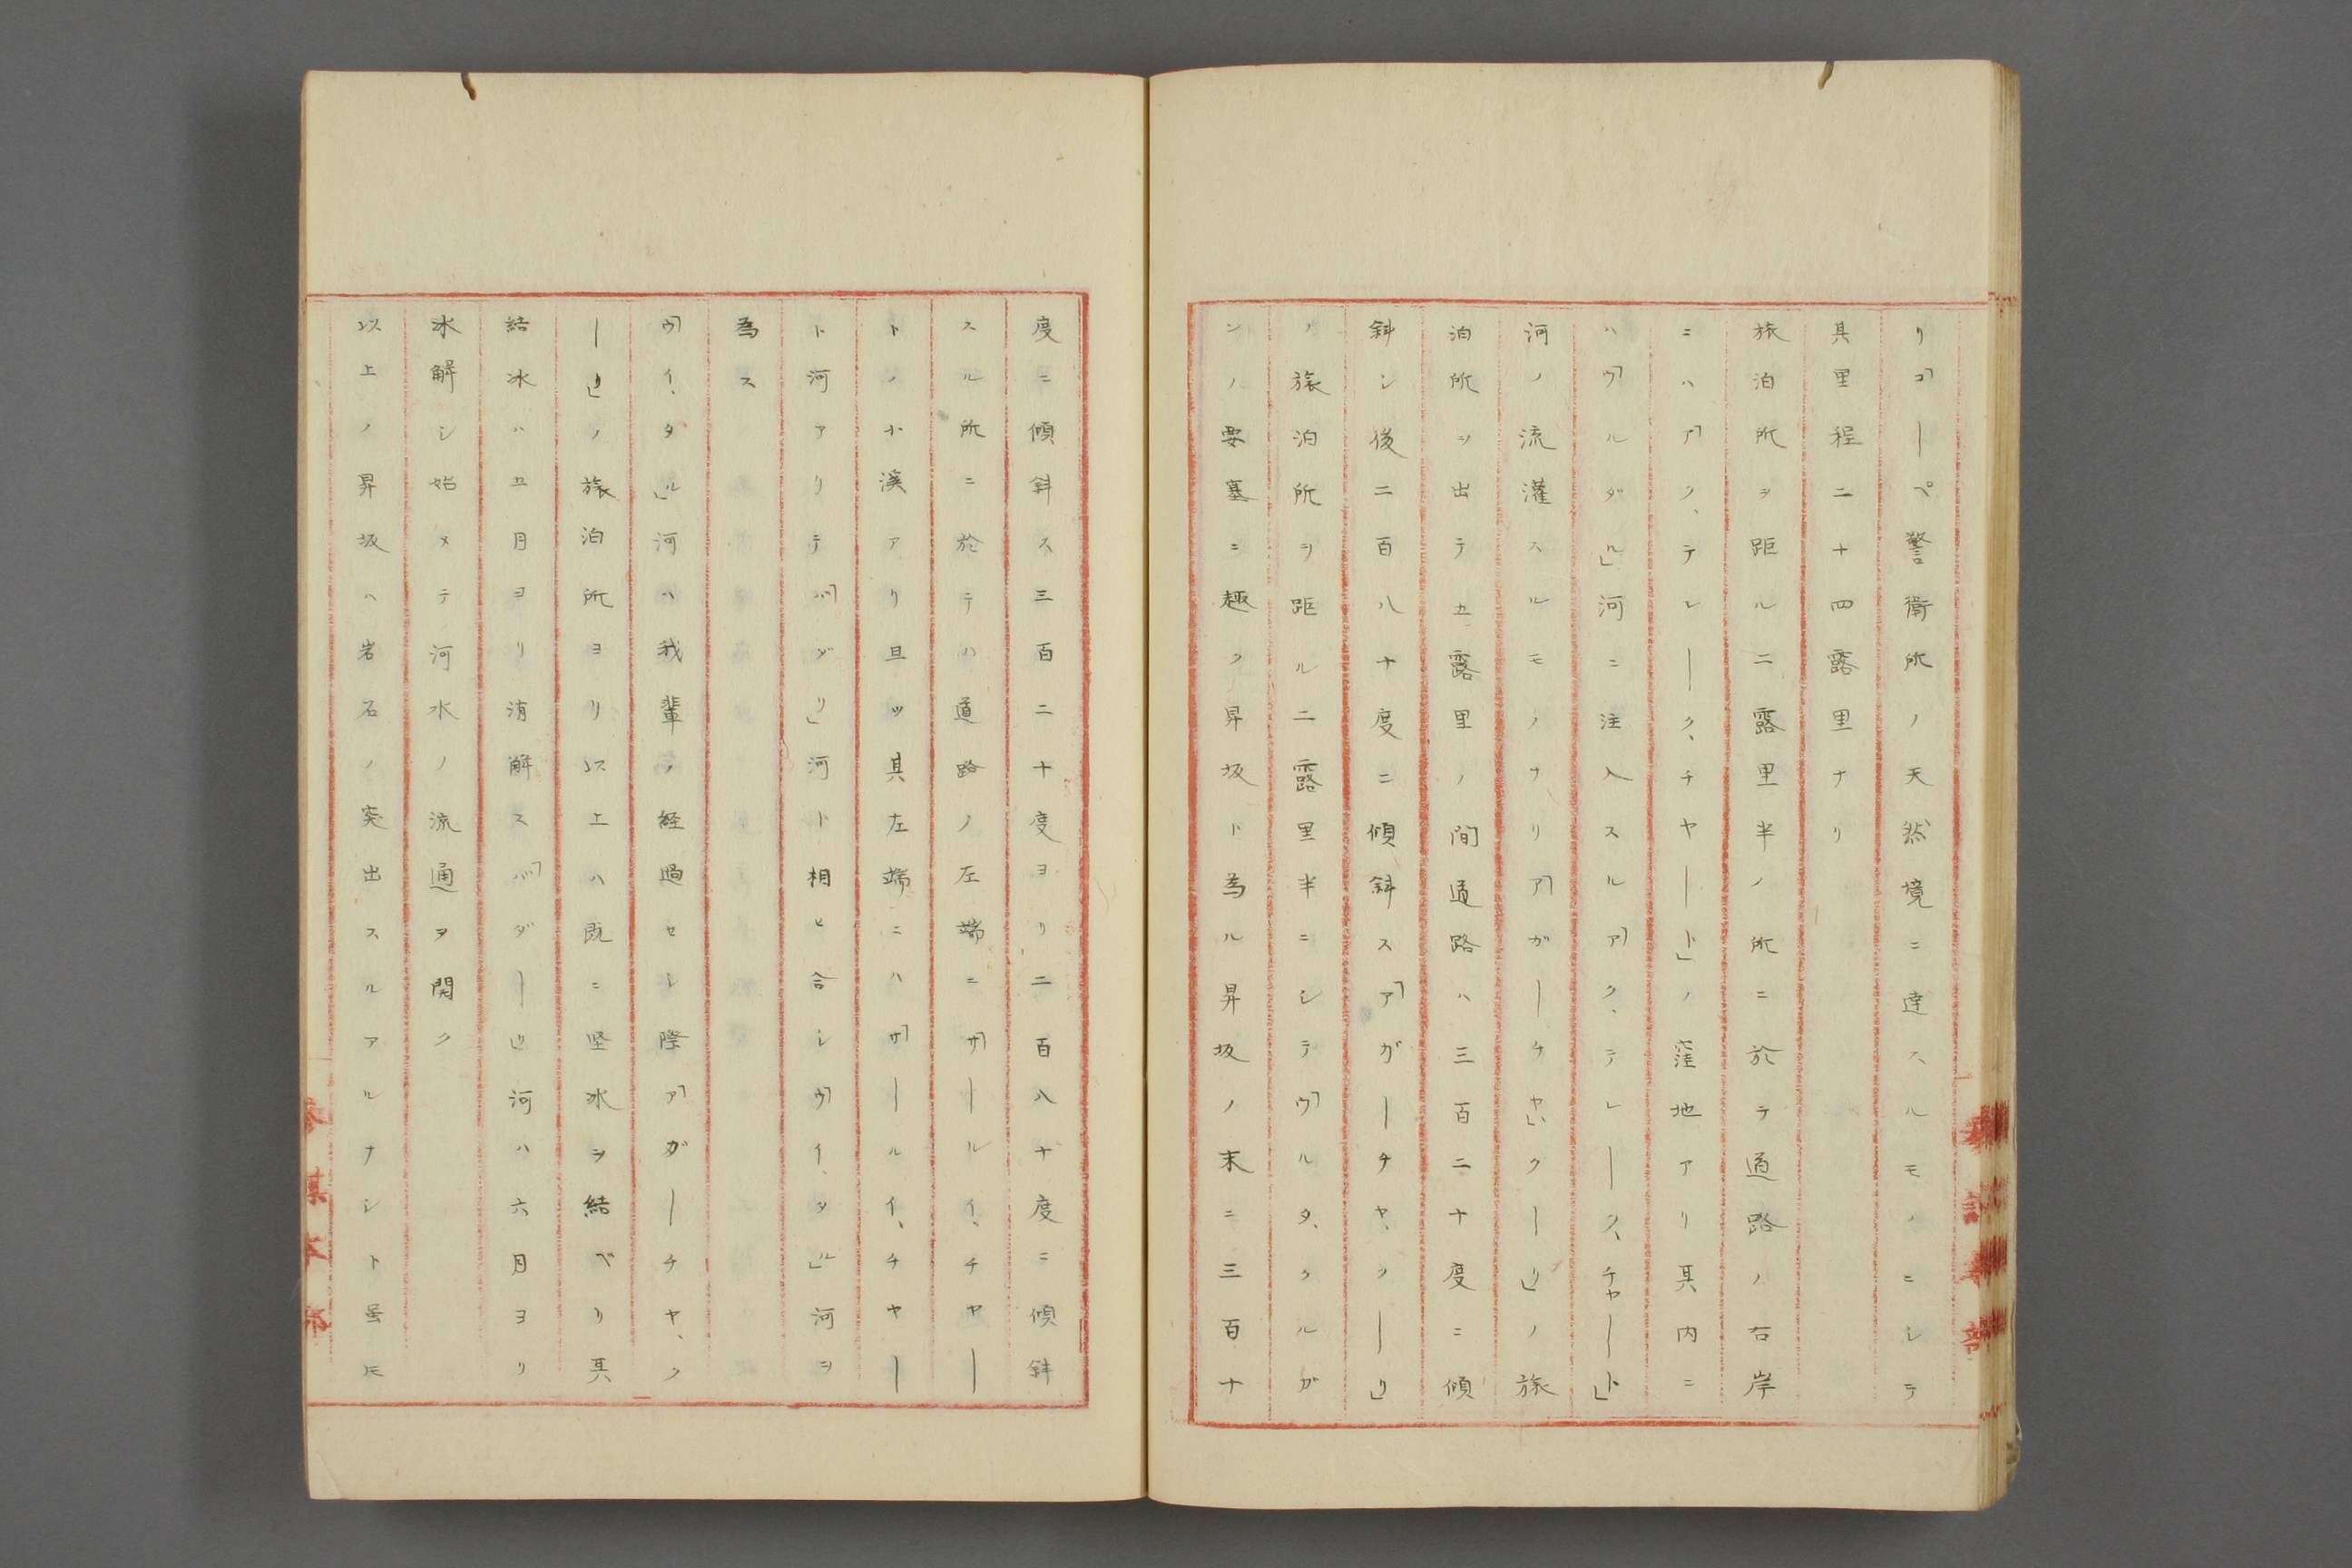 リ「コーペ警衛所ノ天然境ニ達スルモノニシテ
其里程二十四露里ナリ
旅泊所ヲ距ル二露里半ノ所ニ於テ道路ノ右岸
ニハ「アク、テレーク、チヤート」ノ窪地アリ其内ニ
ハ「ウルダル」河ニ注入スル「アク、テレーク、チヤート」
河ノ流灌スルモノナリ「アガーチヤ、クーリ」ノ旅
泊所ヲ出テ五露里ノ間道路ハ三百二十度ニ傾
斜シ後二百八十度ニ傾斜ス「アガーチヤ、クーリ」
ノ旅泊所ヲ距ル二露里半ニシテ「ウルタ、クルガ
ンノ要塞ニ趣ク昇坂ト為ル昇坂ノ末ニ三百十
度ニ傾斜ス三百二十度ヨリ二百八十度ニ傾斜
スル所ニ於テハ道路ノ左端ニ「サールイ、チヤー
トノ小溪アリ且ツ其左端ニハ「サールイ、チヤー
ト河アリテ「バダリ」河ト相ヒ合シ「ウイ、タル」河ヲ
為ス
「ウイ、タル」河ハ我輩ノ経過セシ際「アガーチヤ、ク
ーリ」ノ旅泊所ヨリ以上ハ既ニ坚氷ヲ結ベリ其
結氷ハ五月ヨリ消解ス「バダーリ」河ハ六月ヨリ
氷解シ始メテ河水ノ流通ヲ開ク
以上ノ昇坂ハ岩石ノ突出スルアルナシト虽𪜈